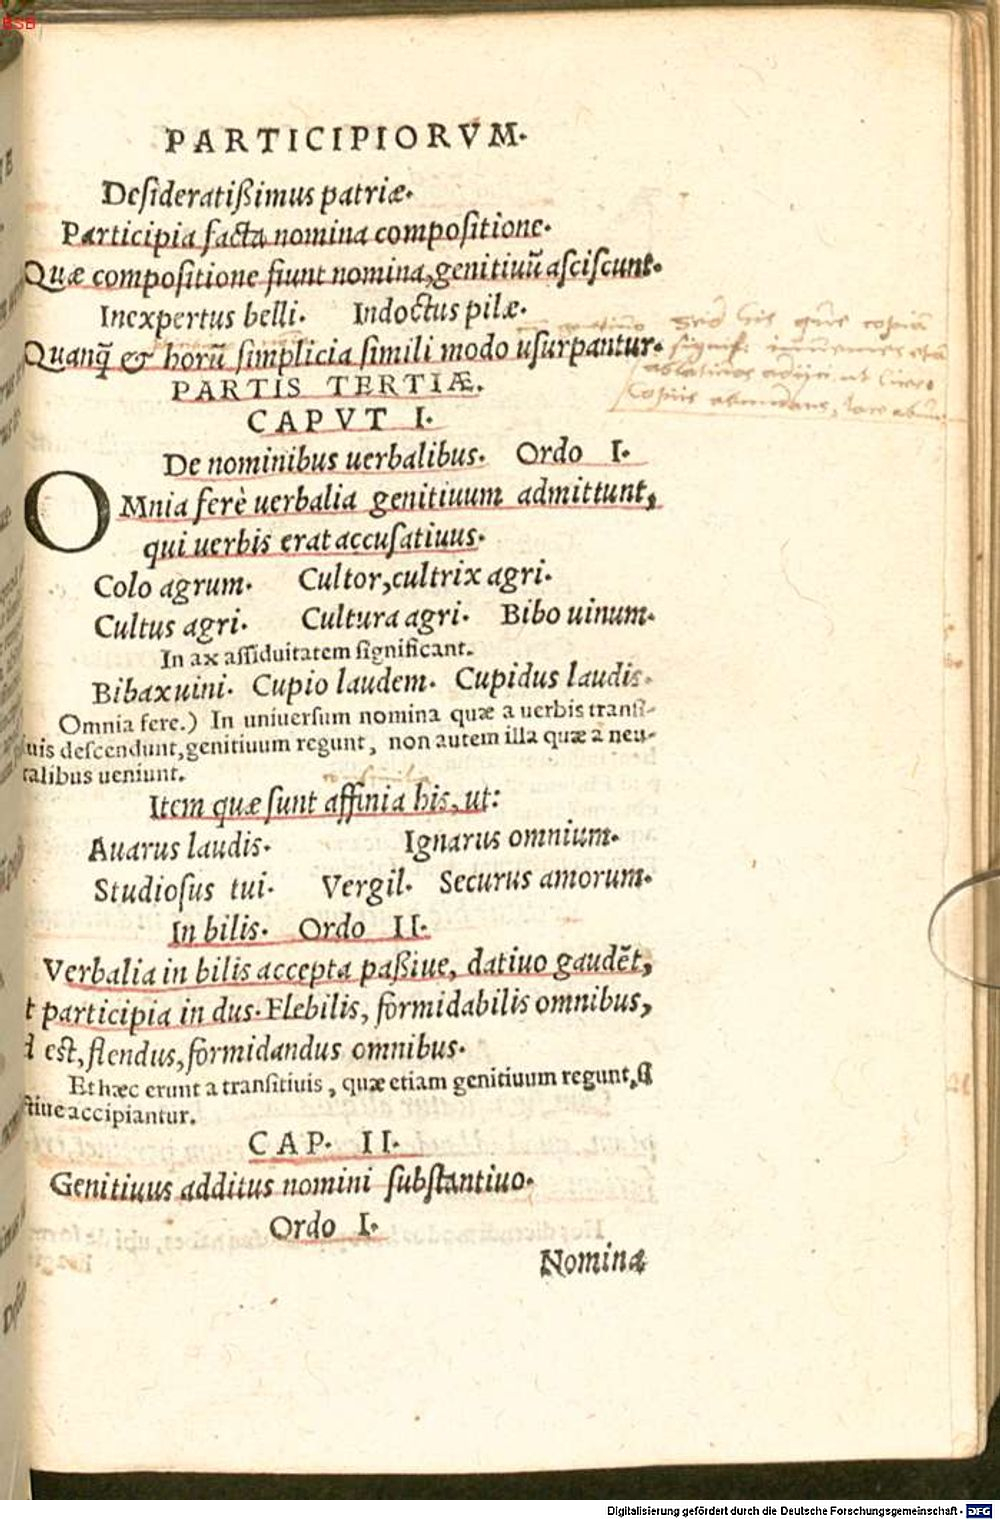 BSB
PARTICIPIORVM.
Desideratißimus patriæ.
Participia facta nomina compositione.
Quæ compositione fiunt nomina, genitiuũ asciscunt.
Inexpertus belli. Indoctus pilæ.
Quanq̃ & horũ simplicia simili modo usurpantur.
PARTIS TERTIÆ.
CAPVT I.
De nominibus uerbalibus. Ordo I.
OMnia ferè uerbalia genitiuum admittunt,
qui uerbis erat accusatiuus.
Colo agrum. Cultor, cultrix agri.
Cultus agri. Cultura agri. Bibo uinum.
In ax assiduitatem significant.
Bibax uini. Cupio laudem. Cupidus laudis.
Omnia fere.) In uniuersum nomina quæ a uerbis transi-
uis descendunt, genitiuum regunt, non autem illa quæ a neu-
ralibus ueniunt.
Item quæ sunt affinia his, ut:
Auarus laudis. Ignarus omnium.
Studiosus tui. Vergil. Securus amorum.
In bilis. Ordo II.
Verbalia in bilis accepta paßiue, datiuo gaudẽt,
t participia in dus. Flebilis, formidabilis omnibus,
d est, flendus, formidandus omnibus.
Et hæc erunt a transitiuis, quæ etiam genitiuum regunt, si
ctiue accipiantur.
CAP. II.
Genitiuus additus nomini substantiuo.
Ordo I.
Nomina
Digitalisierung gefördert durch die Deutsche Forschungsgemeinschaft - DFG